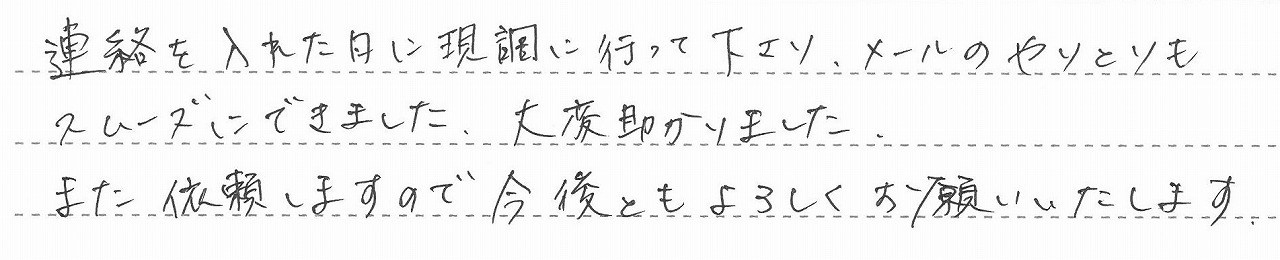 連絡を入れた日に現調に行って下さり、メールのやりとりも
スムーズにできました、大変助かりました、
また依頼しますので今後ともよろしくお願いいたします、